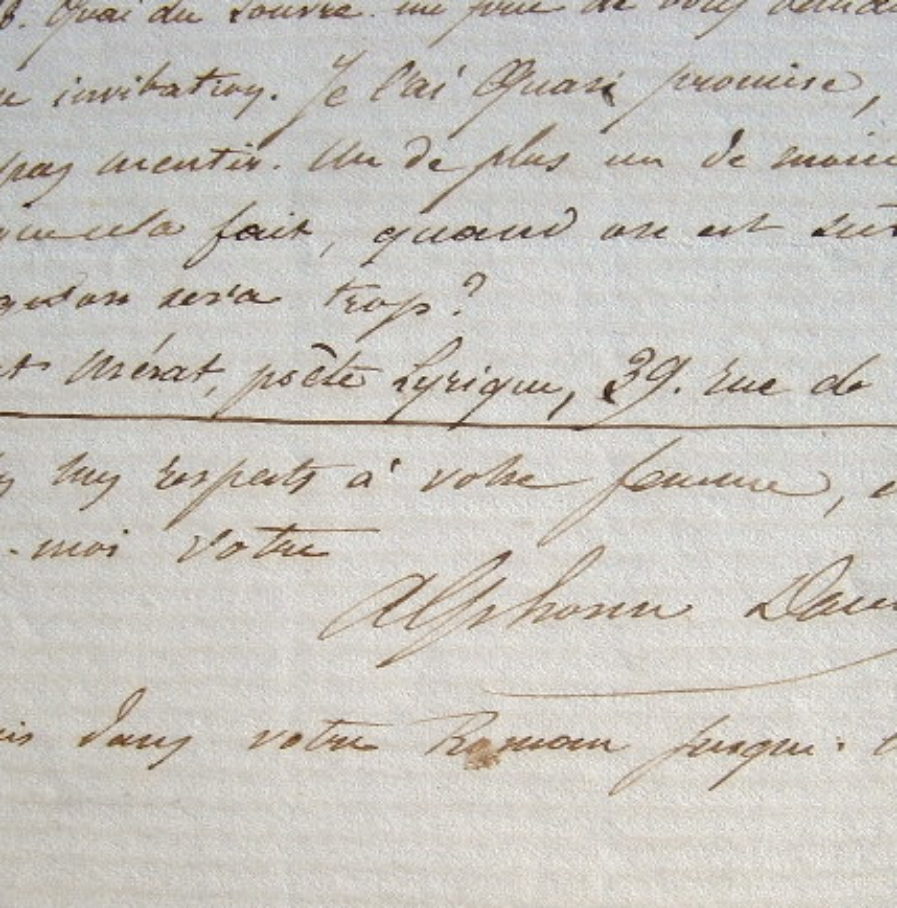 8. Quai du Louvre me prie de vous deman
invitation. Je l'ai Quasi promise,
pas mentir. Un de plus un de moins
que cela fait, quand on est sûr
qu'on sera trop?
Mérat, poète Lyrique, 39. rue de
mes respects à votre femme, e
-moi votre
Alphonse Dau
is dans votre Roman jusqu'